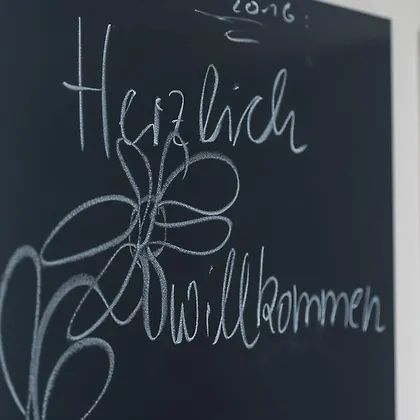 2016:
Herzlich
willkommen